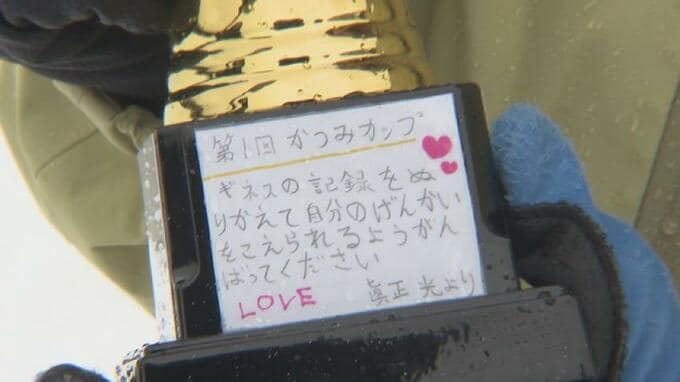 第1回 かつみカップ
ギネスの記録をぬ
りかえて自分のげんかい
をこえられるようがん
ばってください
LOVE 眞正 光より